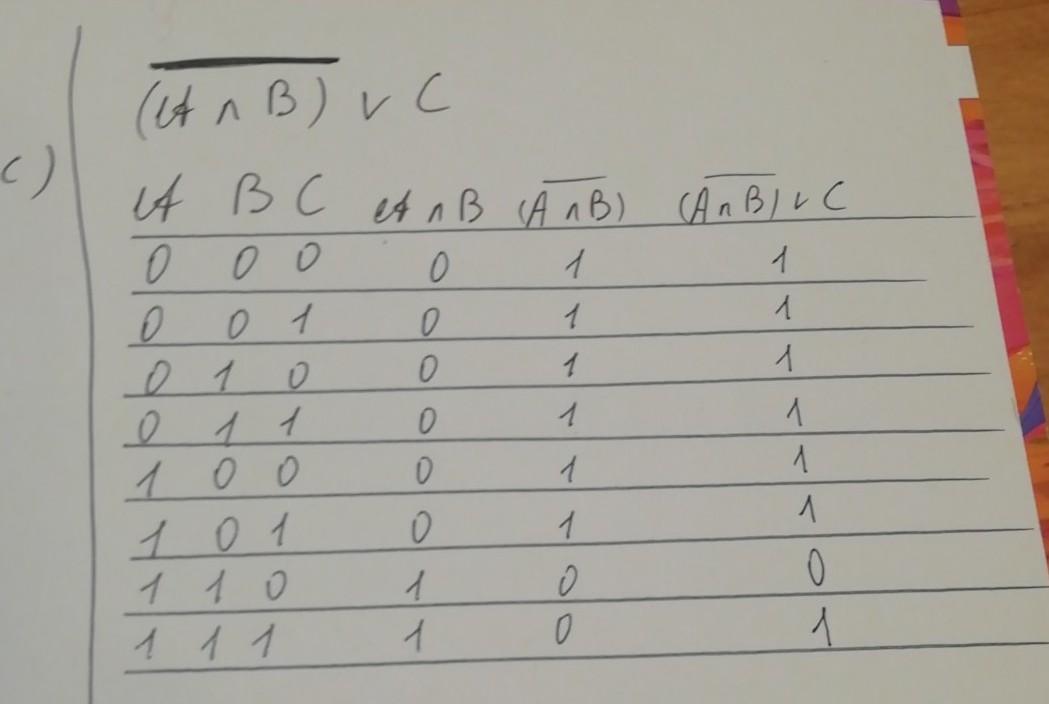 (A ∩ B)̅ v C
c)
A B C A ∩ B (A̅ ̅∩̅ ̅B̅) (A̅ ̅∩̅ ̅B̅) v C
0 0 0 0 1 1
0 0 1 0 1 1
0 1 0 0 1 1
0 1 1 0 1 1
1 0 0 0 1 1
1 0 1 0 1 1
1 1 0 1 0 0
1 1 1 1 0 1